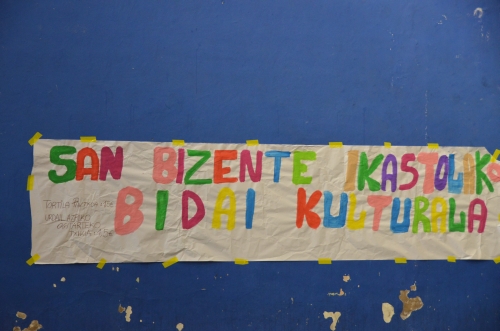 SAN BIZENTE IKASTOLAKO
BIDAI KULTURALA